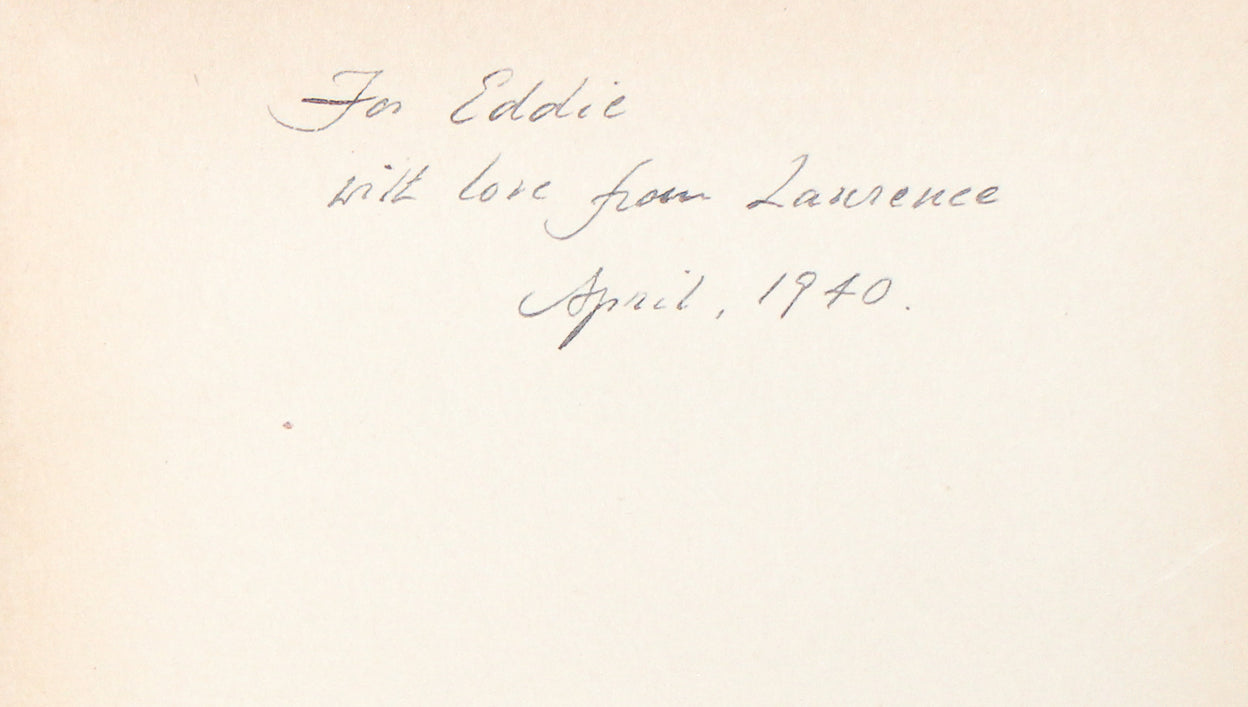 For Eddie
with love from Lawrence
April, 1940.